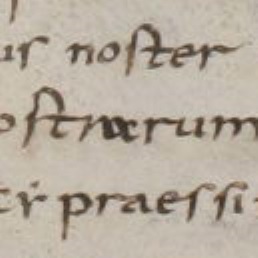 us noster
ostrarum
er praessi